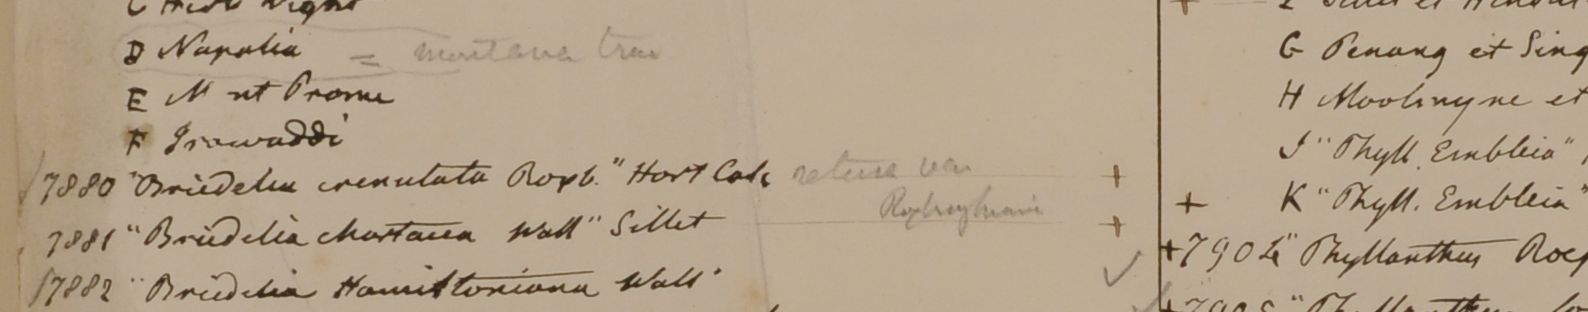 C Herb Wight
D Napalia = montana true
E M nt Prome
F Irawaddi
7880 "Briedelia crenulata Roxb." Hort Calc retusa var
Roxburghiana
7881 "Briedelia chartacea Wall" Sillet
7882 "Briedelia Hamiltoniana Wall"
G Penang et Sing
H Moolmyne et
J "Phyll. Emblica"
+ K "Phyll. Emblica"
+7902 "Phyllanthus